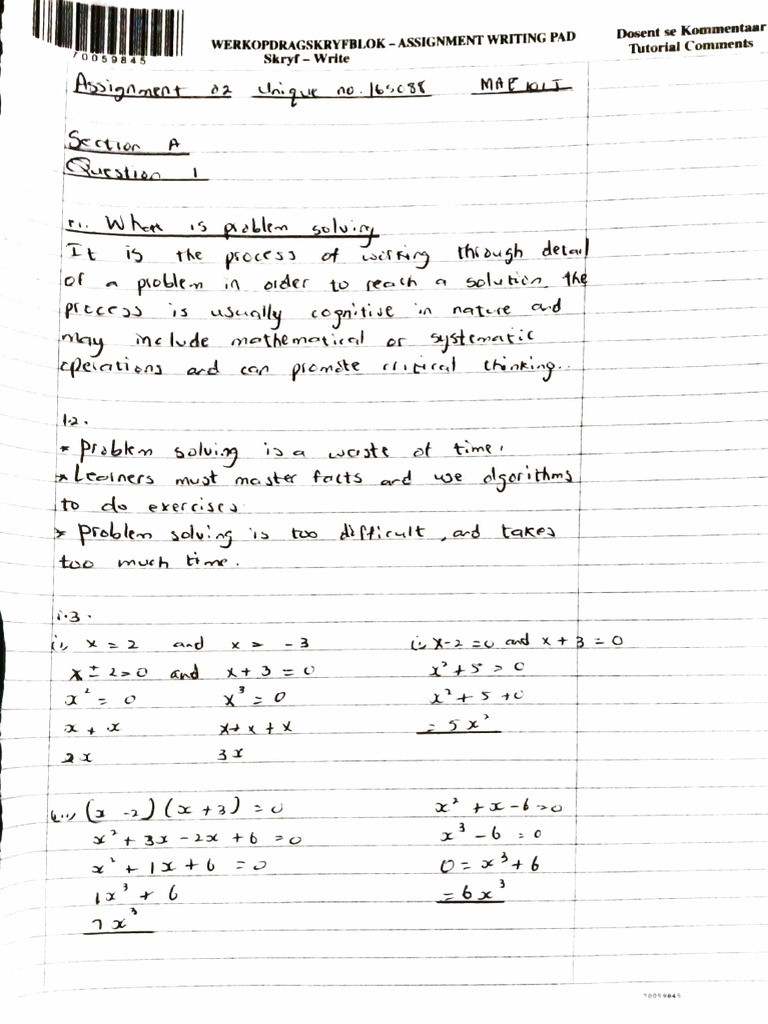 70059845
WERKOPDRAGSKRYFBLOK – ASSIGNMENT WRITING PAD
Skryf – Write
Dosent se Kommentaar
Tutorial Comments
Assignment 02 Unique no. MAE101J
Section A
Question 1
What is problem solving
It is the process of working through detail
of a problem in order to reach a solution, the
process is usually cognitive in nature and
may include mathematical or systematic
operations and can promote critical thinking..
1.2.
* Problem solving is a waste of time.
* Learners must master facts and use algorithms
to do exercises
* Problem solving is too difficult, and takes
too much time.
1.3.
(i) x = 2 and x = -3 (ii) x-2 =0 and x + 3 = 0
x ± 2=0 and x+ 3 = 0 x² + 5 = 0
x² = 0 x³ = 0 x² + 5 + 0
x + x x+ x + x = 5x²
2x 3x
(iii) (x -2) (x +3) = 0 x² + x - 6 = 0
x² + 3x - 2x + 6 = 0 x³ - 6 = 0
x² + 1x + 6 = 0 0 = x³ + 6
1x³ + 6 = 6x³
7x³
70059845